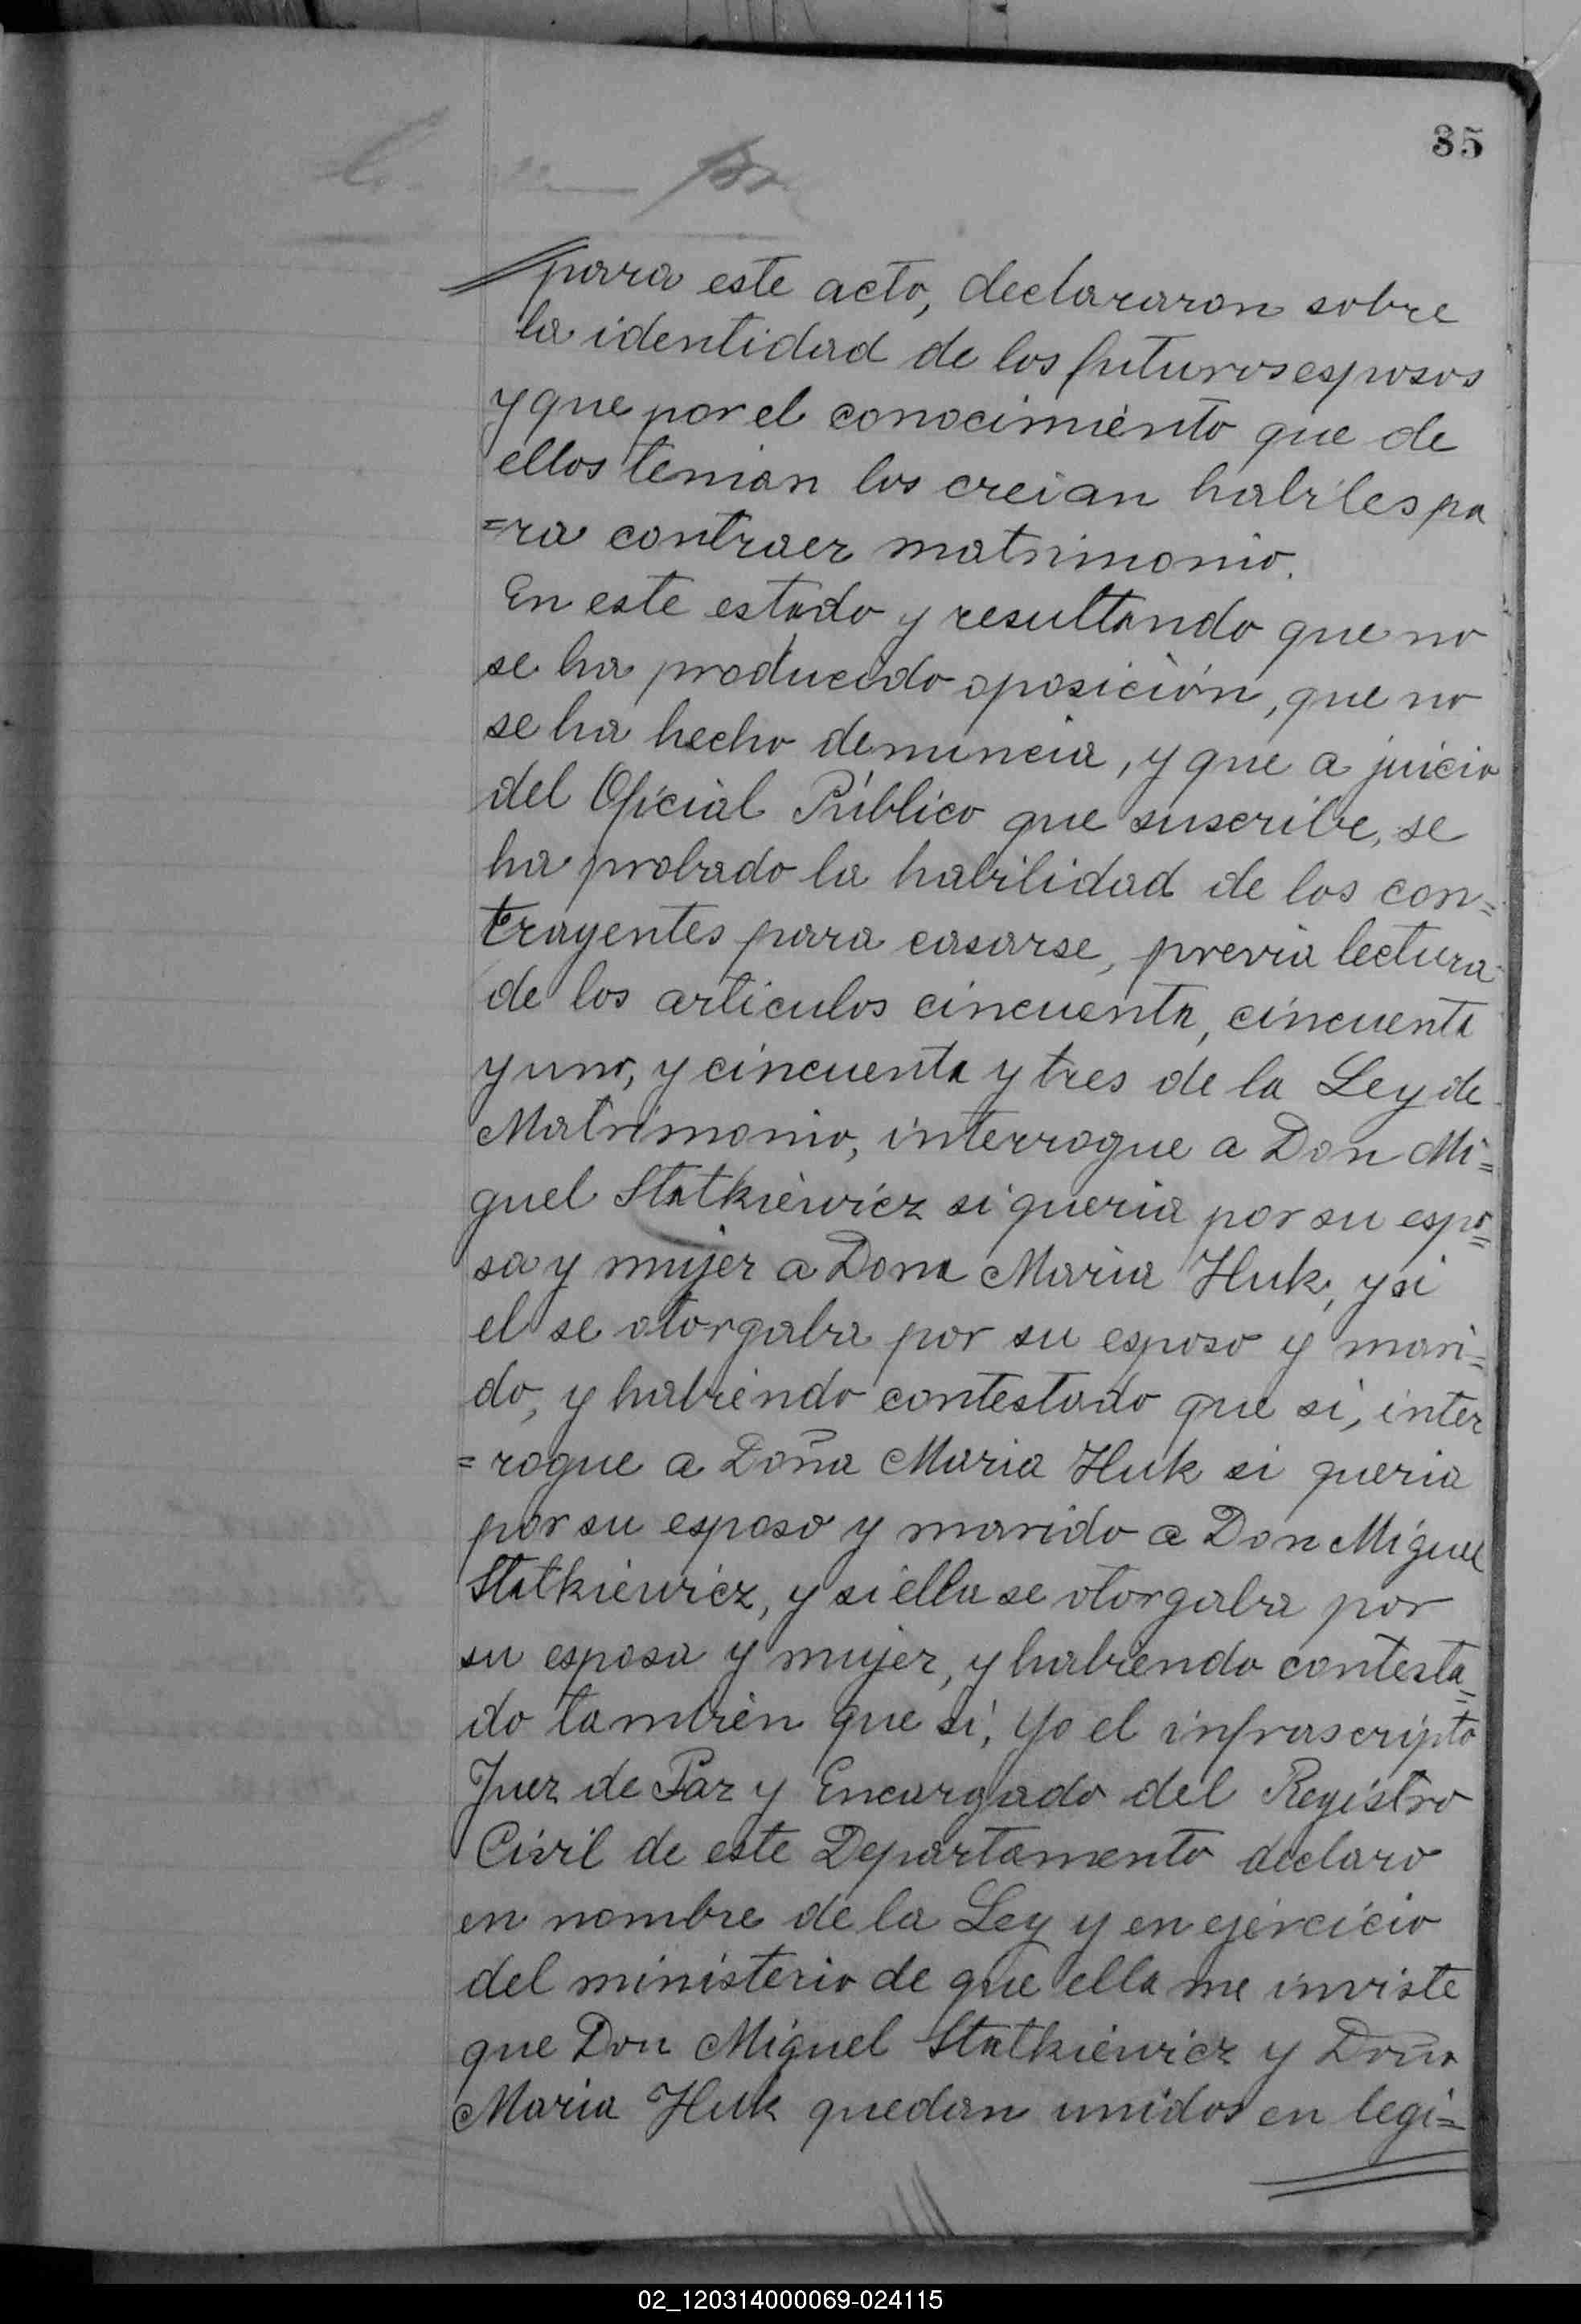 35
para este acto, declararon sobre
la identidad de los futuros esposos
y que por el conocimiento que de
ellos tenian los creian habiles pa
=ra contraer matrimonio.
En este estado y resultando que no
se ha producido oposición, que no
se ha hecho denuncia, y que a juicio
del Oficial Público que suscribe, se
ha probado la habilidad de los con=
trayentes para casarse, previa lectura
de los articulos cincuenta, cincuenta
y uno, y cincuenta y tres de la Ley de
Matrimonio, interrogue a Don Mi=
guel Statkiewicz si queria por su espo=
sa y mujer a Dona Maria Huk, y si
el se otorgaba por su esposo y mari=
do, y habiendo contestado que si, inter
=rogue a Doña Maria Huk si queria
por su esposo y marido a Don Miguel
Statkiewicz, y si ella se otorgaba por
su esposa y mujer, y habiendo contesta=
do tambien que si, Yo el infrascripto
Juez de Paz y Encargado del Registro
Civil de este Departamento declaro
en nombre de la Ley y en ejercicio
del ministerio de que ella me inviste
que Don Miguel Statkiewicz y Doña
Maria Huk quedan unidos en legi=
02_120314000069-024115